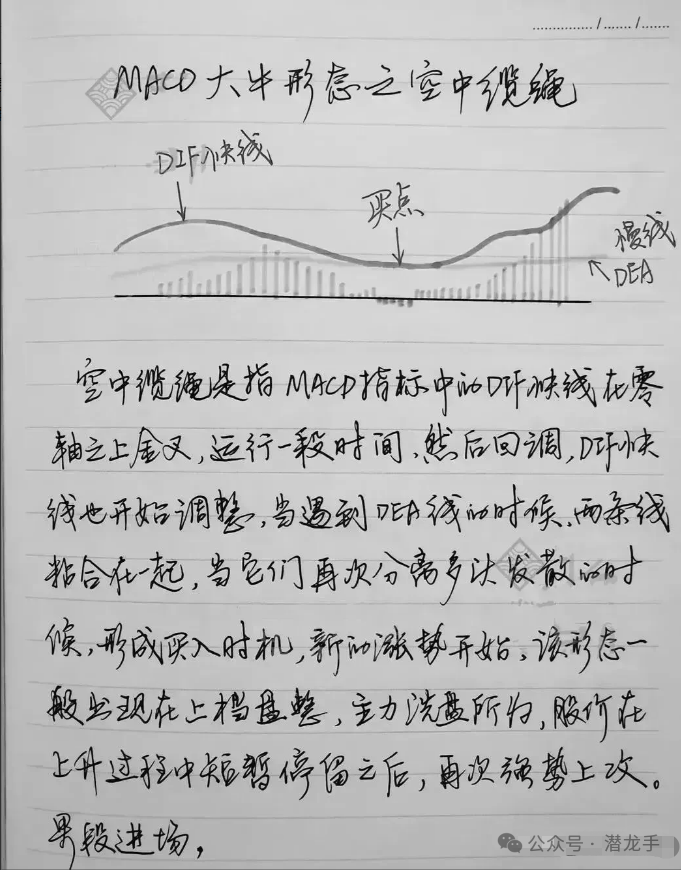 ............... / ....... / .......
MACD大牛形态之空中缆绳
DIF快线
买点
慢线
DEA
空中缆绳是指MACD指标中的DIF快线在零
轴之上金叉,运行一段时间,然后回调,DIF快
线也开始调整,当遇到DEA线的时候,两条线
粘合在一起,当它们再次分离多头发散的时
候,形成买入时机,新的涨势开始,该形态一
般出现在上档盘整,主力洗盘所为,股价在
上升过程中短暂停留之后,再次强势上攻。
果段进场,
公众号·潜龙手